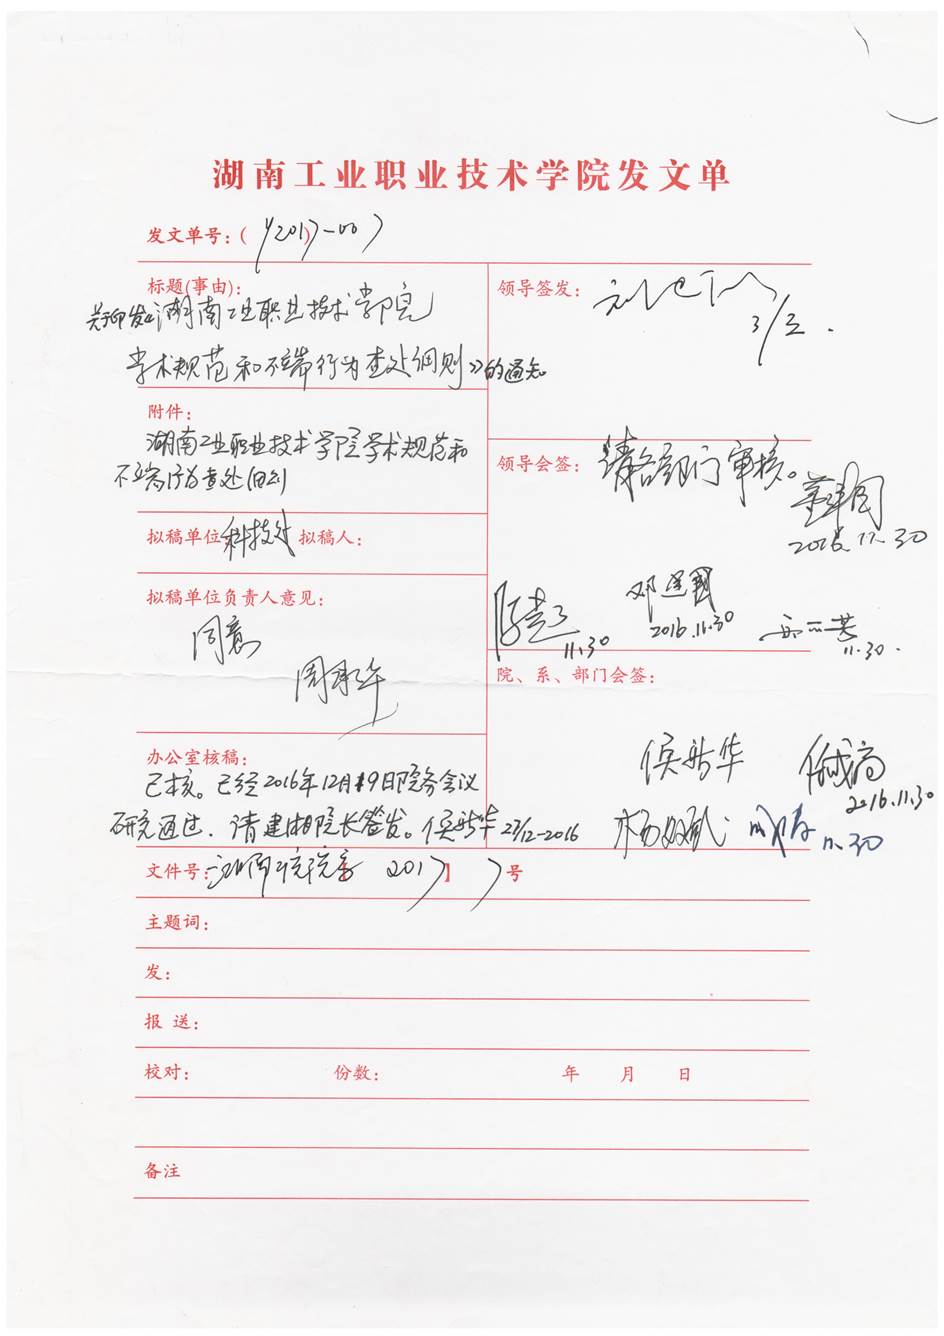 湖南工业职业技术学院发文单
发文单号：( 2017-007
标题(事由)：
关于印发《湖南工业职业技术学院
学术规范和不端行为查处细则》的通知
附件：
湖南工业职业技术学院学术规范和
不端行为查处细则
拟稿单位 科技处 拟稿人：
拟稿单位负责人意见：
同意
办公室核稿：
已核。已经2016年12月19日院务会议
研究通过，请建湘院长签发。侯新华 27/12-2016
领导签发：
3/3.
领导会签： 请各部门审核。
2016.11.30
邓建国
2016.11.30
11.30
11.30.
院、系、部门会签：
侯新华
2016.11.30
11.30
文件号： 2017】 7号
主题词：
发：
报 送：
校对： 份数： 年 月 日
备注